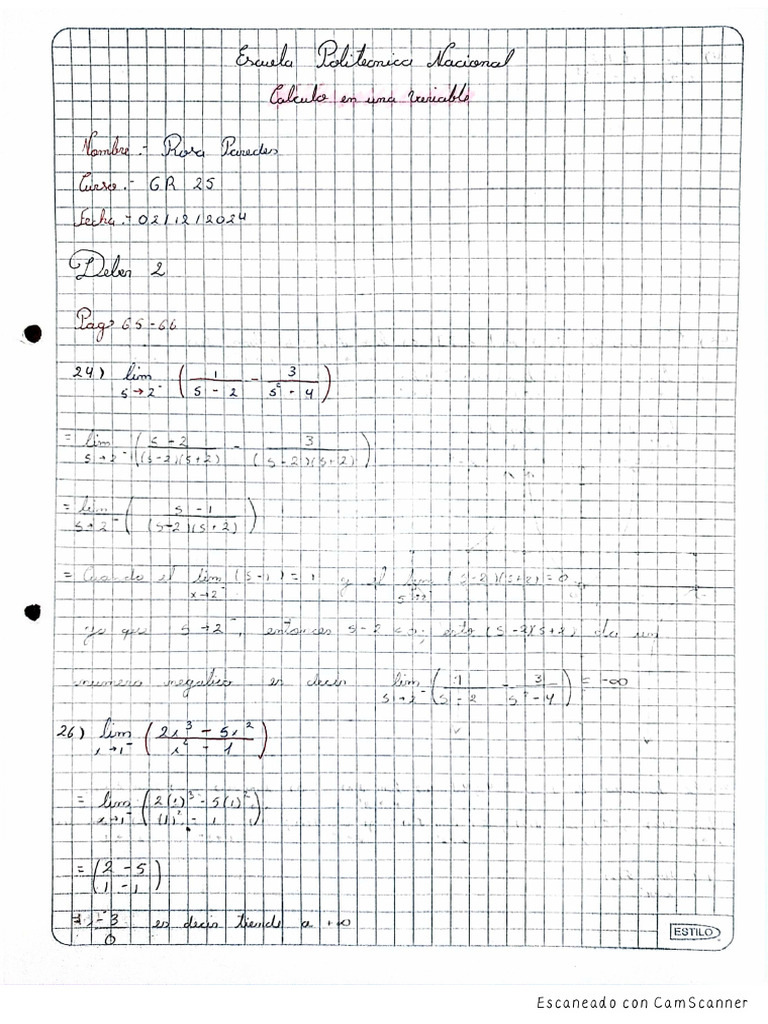 Escuela Politecnica Nacional
Calculo en una variable
Nombre.- Rosa Paredes
Curso.- GR 25
Fecha.- 02/12/2024
Deber 2
Pag? 65-66
24) lim s→2⁻ (1/(s-2) - 3/(s²-4))
= lim s→2⁻ ((s-2)/((s-2)(s+2)) - 3/((s-2)(s+2)))
= lim s→2⁻ ((s-1)/((s-2)(s+2)))
= Cuando el lim x→2⁻ (s-1) = 1 y el lim s→2⁻ (s-2)(s+2) = 0
ya que s→2⁻, entonces s-2 < 0; esto (s-2)(s+2) da un
numero negativo es decir lim s→2⁻ (1/(s-2) - 3/(s²-4)) = -∞
26) lim x→1⁻ ((2x³ - 5x²)/(x² - 1))
= lim x→1⁻ ((2(1)³ - 5(1)²)/((1)² - 1))
= ((2 - 5)/(1 - 1))
= -3/0 es decir tiende a +∞
ESTILO
Escaneado con CamScanner